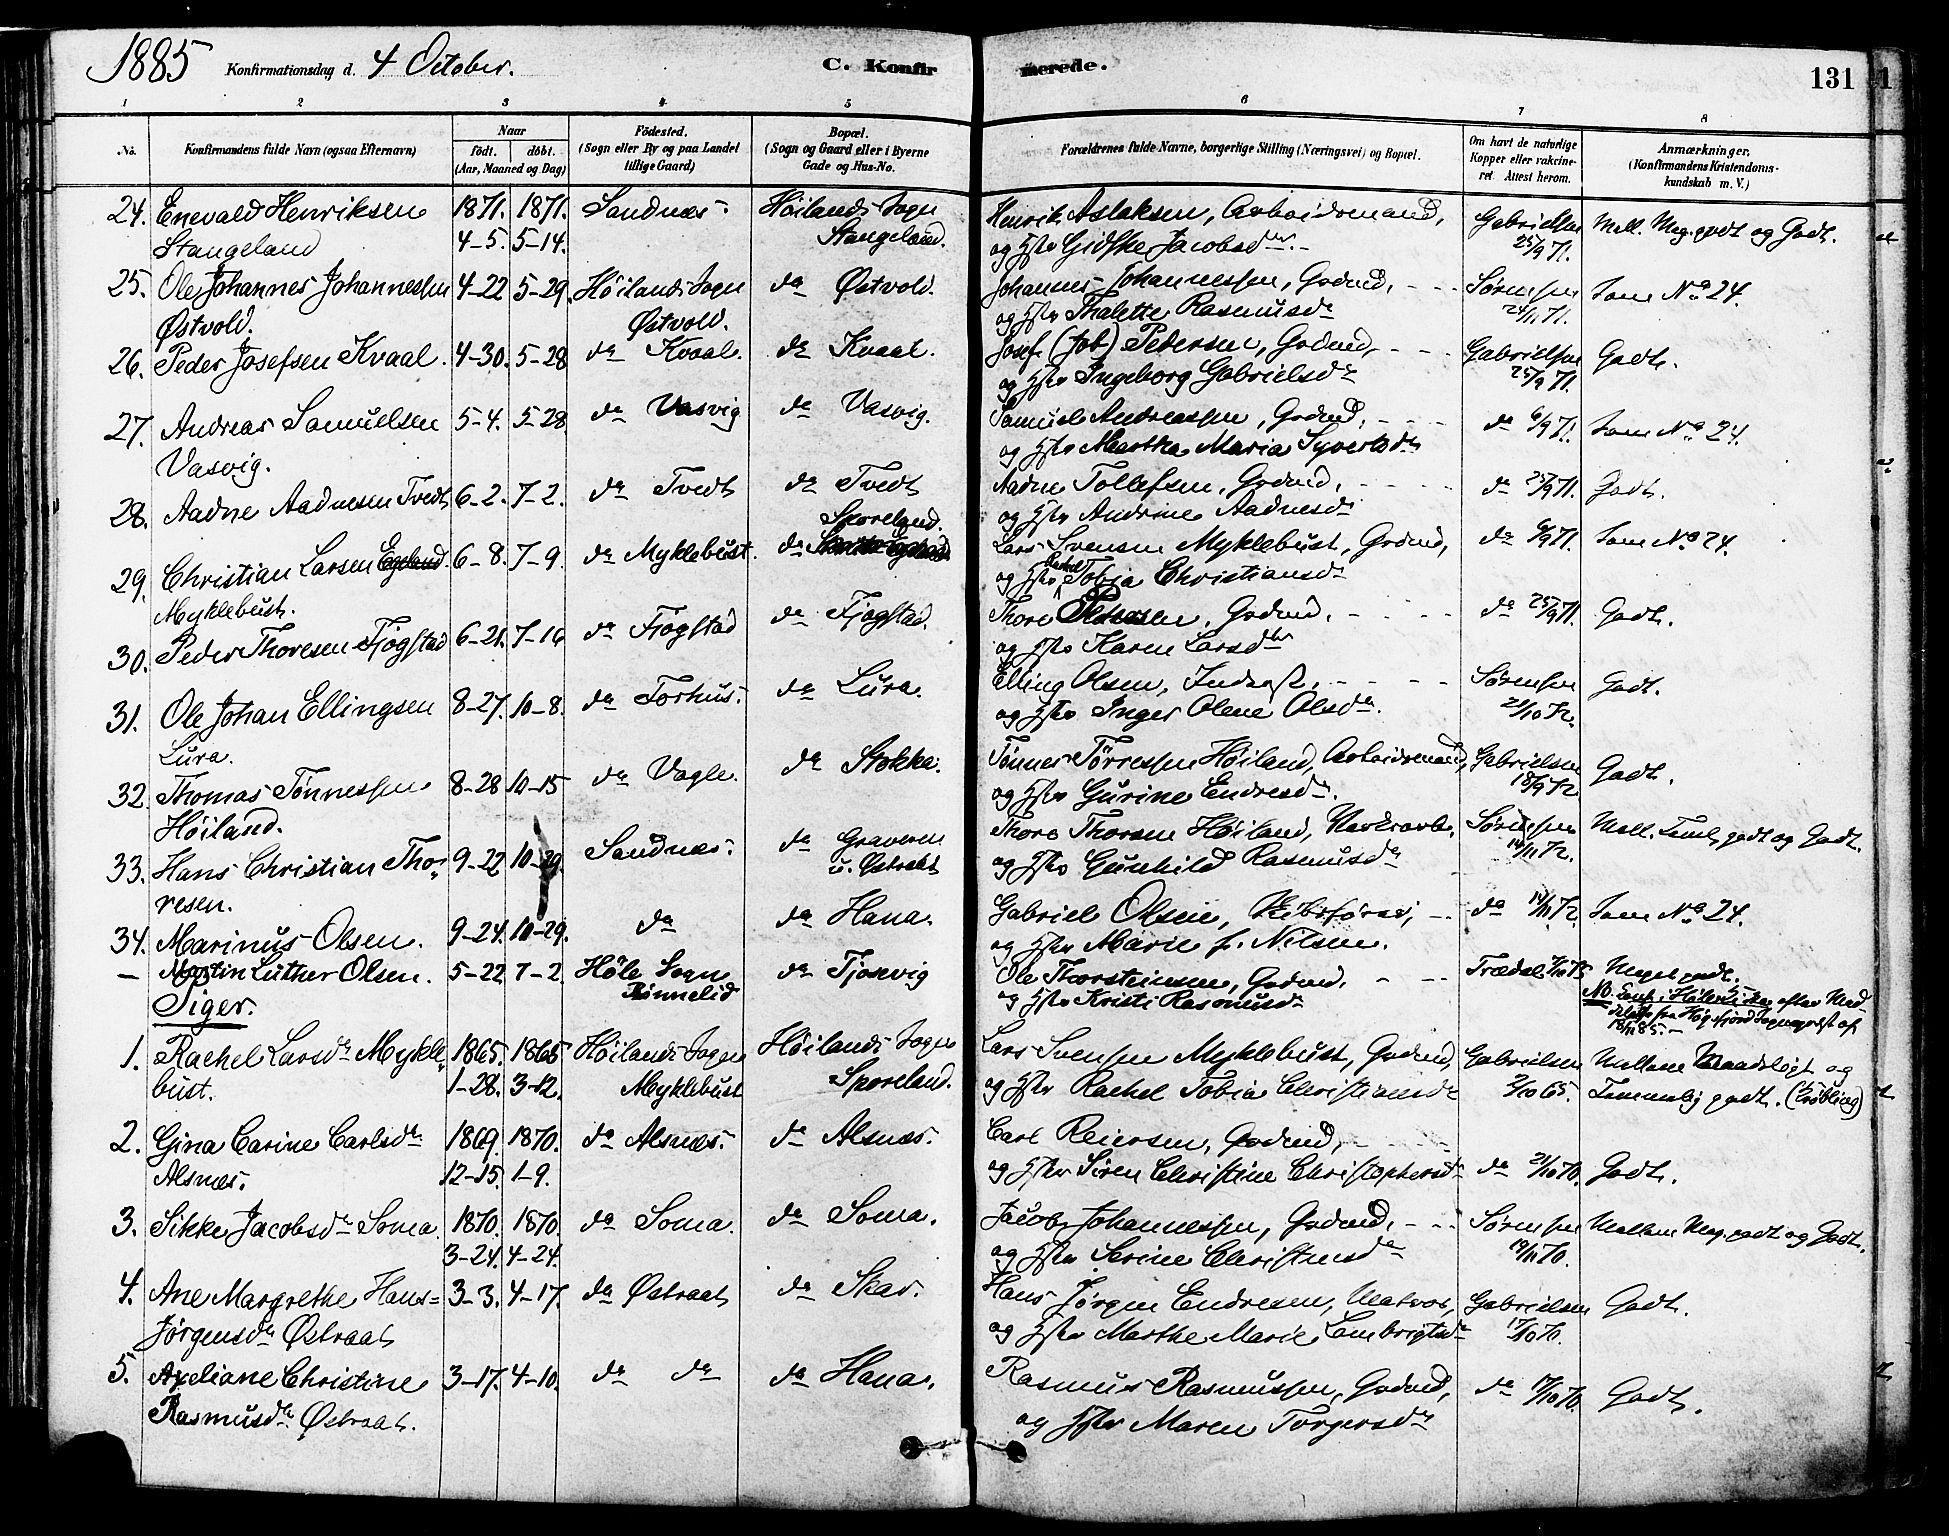 1885 Konfirmationsdag d. 4 October. C. Konfirmerede. 131
1 2 3 4 5 6 7 8
No. Konfirmandens fulde Navn (ogsaa Efternavn) Naar født. døbt. (Aar, Maaned og Dag) Fødested. (Sogn eller By og paa Landet tillige Gaard) Bopæl. (Sogn og Gaard eller i Byerne Gade og Hus-No. Forældrenes fulde Navne, borgerlige Stilling (Næringsvei) og Bopæl. Om havt de naturlige Kopper eller vakcineret. Attest herom. Anmærkninger. (Konfirmandens Kristendomskundskab m. V.)
24. Enevald Henriksen 1871. 1871. Sandnæs. Høilands Sogn Henrik Aslaksen, Arbeidsmand, Gabrielsen Mell. Meg. godt og Godt.
Stangeland 4-5. 5-14. Stangeland. og Hstr Gidske Jacobsdtr. 25/9 71.
25. Ole Johannes Johannessen 4-22 5-29. Høilands Sogn do Østvold. Johannes Johannessen, Grdmd, Sørensen Som No 24.
Østvold. Østvold. og Hstr Thalette Rasmusdr 24/11 71.
26. Peder Josefsen Kvaal. 4-30. 5-28 do Kvaal. do Kvaal. Josef (Job) Pedersen, Grdmd, Gabrielsen Godt.
og Hstr Ingeborg Gabrielsdr 25/9 71.
27. Andreas Samuelsen 5-4. 5-28. do Vasvig do Vasvig. Samuel Andreassen, Grdmd, do 6/9 71. Som No 24.
Vasvig. og Hstr Martha Maria Syvertsdr
28. Aadne Aadnesen Tvedt 6-2. 7-2. do Tvedt do Tvedt Aadne Tollefsen, Grdmd, do 25/9 71. Godt.
Sporeland. og Hstr Andrine Aadnesdr
29. Christian Larsen 6-8. 7-9. do Myklebust. do Lars Svensen Myklebust, Grdmd, do 6/9 71. Som No 24.
Myklebust. og Hstr Rachel Tobia Christiansdr
30. Peder Thoresen Fjogstad 6-21. 7-16 do Fjogstad do Fjogstad. Thore Petersen, Grdmd, do 25/9 71. Godt.
og Hstr Karen Larsdtr
31. Ole Johan Ellingsen 8-27. 10-8. do Forhus. do Lura. Elling Olsen, Inderst, Sørensen Godt.
Lura. og Hstr Inger Olene Olsdr. 21/10 72.
32. Thomas Tønnessen 8-28 10-15 do Vagle. do Stokke. Tønnes Tørressen Høiland, Arbeidsmand, Gabrielsen Godt.
Høiland. og Hstr Gurine Endresdr. 18/9 72
33. Hans Christian Tho- 9-22 10-29. Sandnæs. do Graveren Thore Thorsen Høiland, Sørensen Mell. Teml. godt og Godt.
resen. u. Østraat og Hstr Gunhild Rasmusdr 14/11 72.
34. Marinus Olsen. 9-24. 10-29. do do Hana. Gabriel Olsen, Skibsfører, do 14/11 72. Som No 24.
og Hstr Marie f. Nilsen.
— Martin Luther Olsen. 5-22 7-2. Høle Sogn do Tjosvig Ole Thorsteinsen, Grdmd. Trædal Meget godt.
Rønnelid og Hstr Kristi Rasmusdr NB.
Piger.
1. Rachel Larsdr Mykle- 1865. 1865 Høilands Sogn Høilands Sogn Lars Svensen Myklebust, Grdmd, Gabrielsen Mellem Maadeligt og
bust. 1-28. 3-12. Myklebust Sporeland. og Hstr Rachel Tobia Christiansdr 2/10 65. Temmelig godt.
2. Gina Carine Carlsdr 1869. 1870. do Alsnæs. do Alsnæs. Carl Reiersen, Grdmd,
Alsnæs. 12-15. 1-9. og Hstr Siren Christine Christophersdr do 21/10 70. Godt.
3. Sikke Jacobsdr Soma. 1870. 1870. do Soma. do Soma. Jacob Johannessen, Grdmd, Sørensen Mellem Meg. godt og Godt.
3-24. 4-24. og Hstr Serine Christensdr 19/11 70.
4. Ane Margrethe Hans- 3-3. 4-17. do Østraat do Skar. Hans Jørgen Endresen, Matros, Gabrielsen Godt.
Jørgensdr Østraat og Hstr Marthe Marie Lambrigtsdr 17/10 70.
5. Axeliane Christine 3-17. 4-10. do do do Hana. Rasmus Rasmussen, Grdmd, do 17/10 70. Godt.
Rasmusdtr Østraat. og Hstr Maren Torgersdr